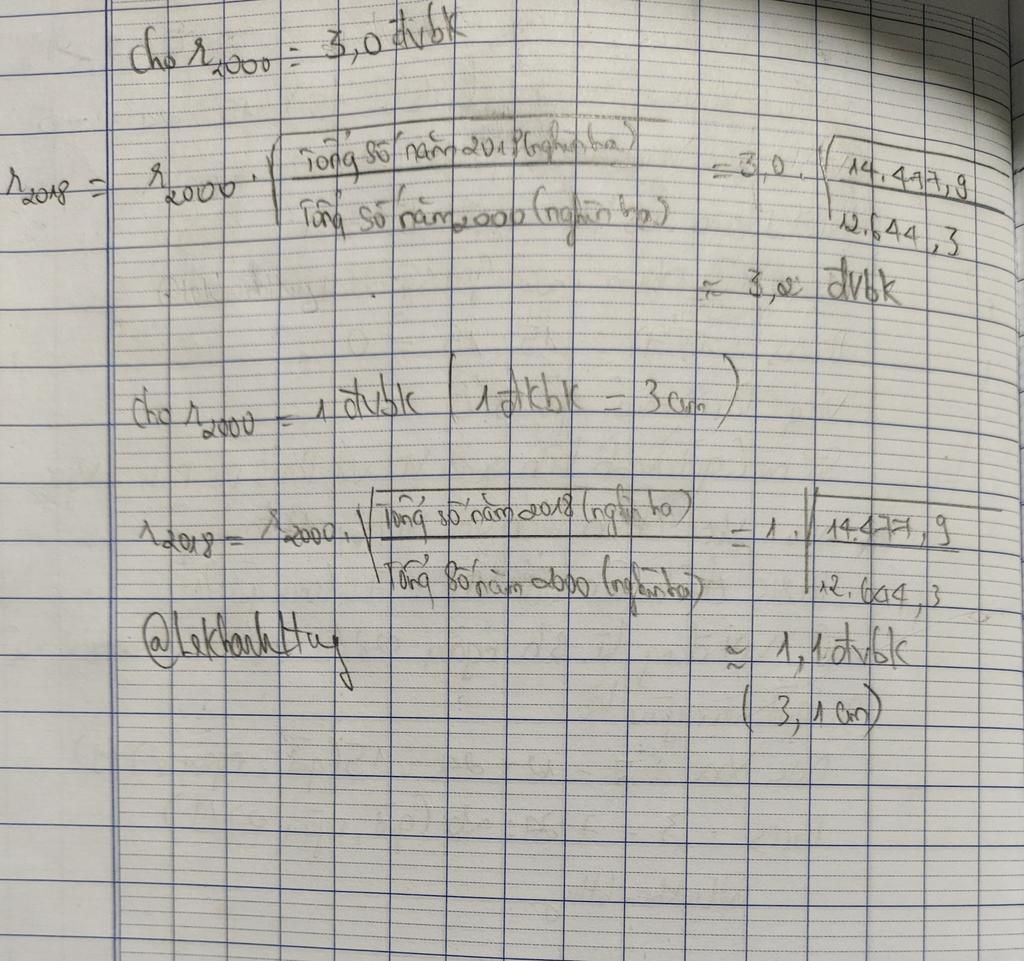 Cho r2000 = 3,0 đvbk
r2018 = r2000 . √(Tổng số năm 2018 (nghìn ha) / Tổng số năm 2000 (nghìn ha)) = 3,0 . √(14.477,9 / 12.644,3)
≈ 3,2 đvbk
Cho r2000 = 1 đvbk (1 đkbk = 3 cm)
r2018 = r2000 . √(Tổng số năm 2018 (nghìn ha) / Tổng số năm 2000 (nghìn ha)) = 1 . √(14.477,9 / 12.644,3)
@LekhanhHuy
≈ 1,1 đvbk
(3,1 cm)